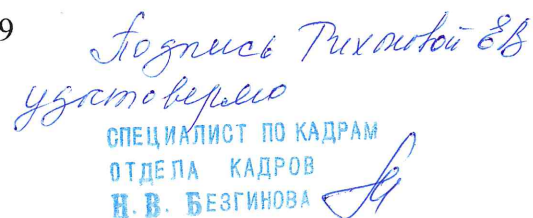 9
Подпись Тихоновой ЕВ
удостоверяю
СПЕЦИАЛИСТ ПО КАДРАМ
ОТДЕЛА КАДРОВ
Н. В. БЕЗГИНОВА